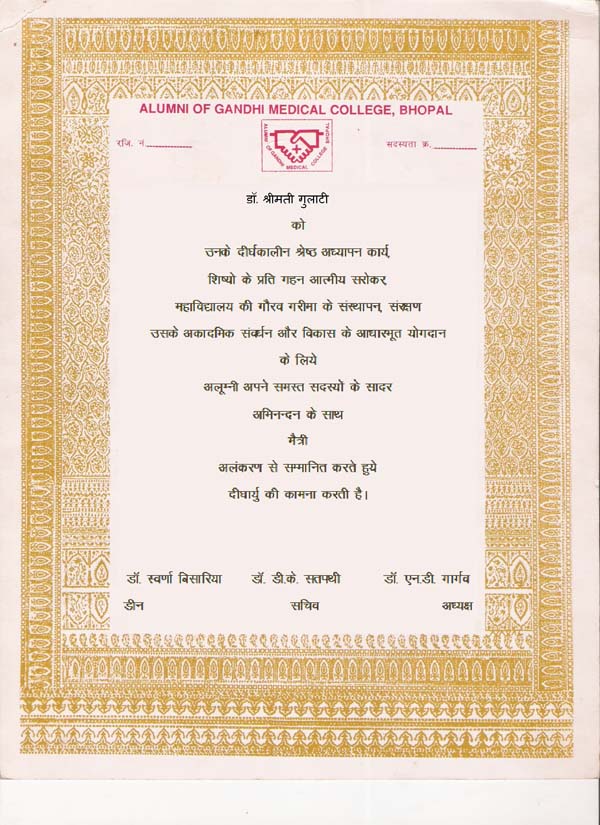 ALUMNI OF GANDHI MEDICAL COLLEGE, BHOPAL
रजि. नं.
ALUMNI OF GANDHI MEDICAL COLLEGE BHOPAL
सदस्यता क्र.
डॉ. श्रीमती गुलाटी
को
उनके दीर्घकालीन श्रेष्ठ अध्यापन कार्य,
शिष्यो के प्रति गहन आत्मीय सरोकर,
महाविद्यालय की गौरव गरीमा के संस्थापन, संरक्षण
उसके अकादमिक संवर्धन और विकास के आधारमूत योगदान
के लिये
अलूम्नी अपने समस्त सदस्यों के सादर
अमिनन्दन के साथ
मैत्री
अलंकरण से सम्मानित करते हुये
दीघार्यु की कामना करती है।
डॉ. स्वर्णा बिसारिया डॉ. डी.के. सतफ्थी डॉ. एन.डी. गार्गव
डीन सचिव अध्यक्ष